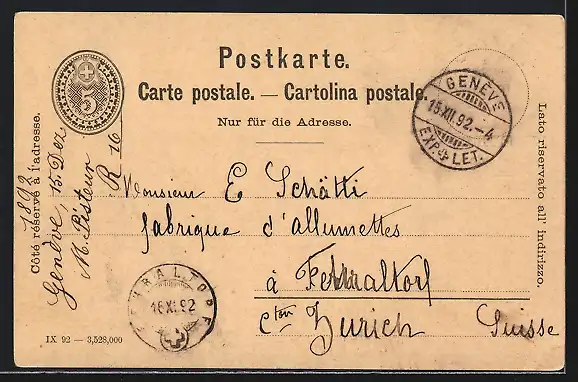 Postkarte.
Carte postale. — Cartolina postale.
Nur für die Adresse.
5
GENÈVE
15.XII.92.-4
EXP. LET.
Côté réservé à l'adresse.
Lato riservato all' indirizzo.
1892
Genève, 15 Dez
M. Pisteur
R
16
Monsieur E Schätti
fabrique d'allumettes
à Fehraltorf
cton Zurich Suisse
FEHRALTORF
16.XII.92
IX 92 — 3,528,000